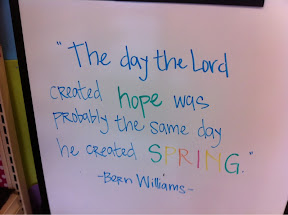 "The day the Lord
created hope was
probably the same day
he created SPRING."
-Bern Williams-